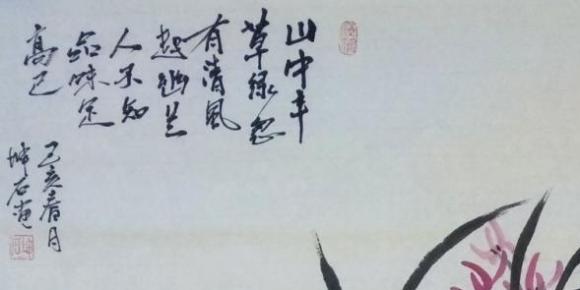 山中丰
草绿忽
有清风
起幽兰
人不知
品味足
高已
己亥春月
坤石画